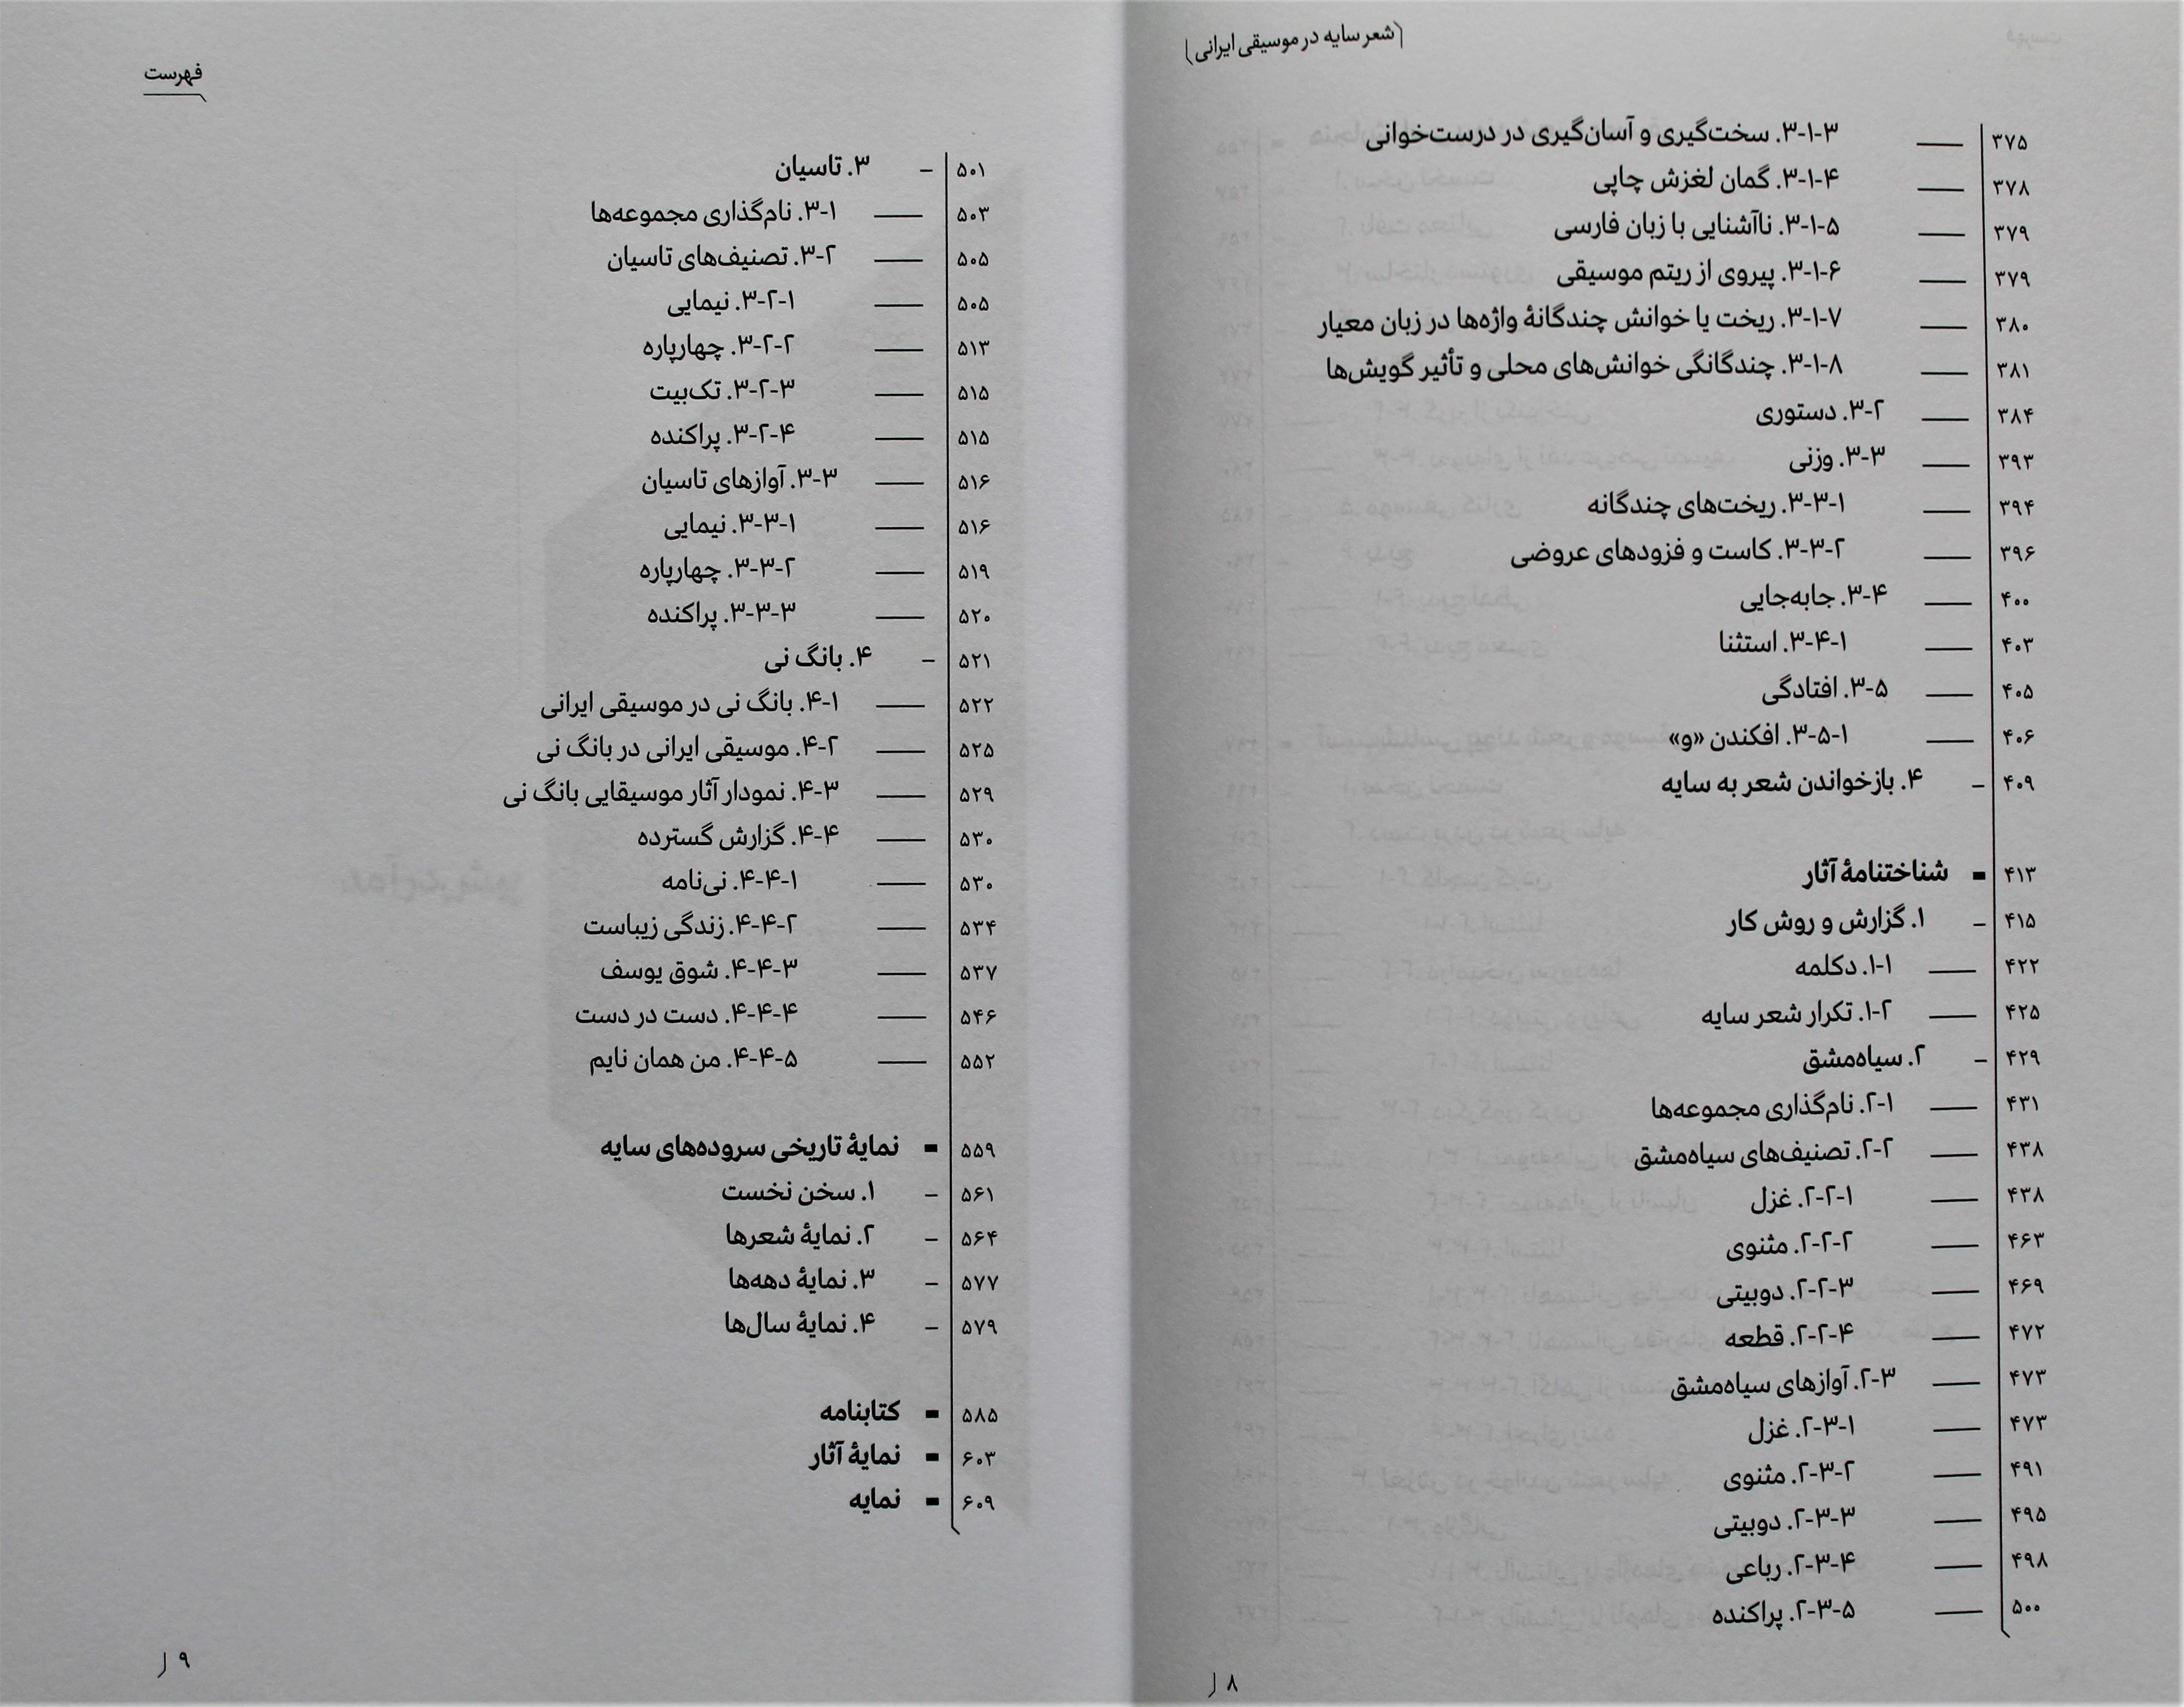 (شعر سایه در موسیقی ایرانی)
۳۷۵ — ۳-۱-۳. سخت‌گیری و آسان‌گیری در درست‌خوانی
۳۷۸ — ۳-۱-۴. گمان لغزش چاپی
۳۷۹ — ۳-۱-۵. ناآشنایی با زبان فارسی
۳۷۹ — ۳-۱-۶. پیروی از ریتم موسیقی
۳۸۰ — ۳-۱-۷. ریخت یا خوانش چندگانۀ واژه‌ها در زبان معیار
۳۸۱ — ۳-۱-۸. چندگانگی خوانش‌های محلی و تأثیر گویش‌ها
۳۸۴ — ۳-۲. دستوری
۳۹۳ — ۳-۳. وزنی
۳۹۴ — ۳-۳-۱. ریخت‌های چندگانه
۳۹۶ — ۳-۳-۲. کاست و فزودهای عروضی
۴۰۰ — ۳-۴. جابه‌جایی
۴۰۳ — ۳-۴-۱. استثنا
۴۰۵ — ۳-۵. افتادگی
۴۰۶ — ۳-۵-۱. افکندن «و»
۴۰۹ – ۴. بازخواندن شعر به سایه
۴۱۳ - شناختنامۀ آثار
۴۱۵ – ۱. گزارش و روش کار
۴۲۲ — ۱-۱. دکلمه
۴۲۵ — ۱-۲. تکرار شعر سایه
۴۲۹ – ۲. سیاه‌مشق
۴۳۱ — ۲-۱. نام‌گذاری مجموعه‌ها
۴۳۸ — ۲-۲. تصنیف‌های سیاه‌مشق
۴۳۸ — ۲-۲-۱. غزل
۴۶۳ — ۲-۲-۲. مثنوی
۴۶۹ — ۲-۲-۳. دوبیتی
۴۷۲ — ۲-۲-۴. قطعه
۴۷۳ — ۲-۳. آوازهای سیاه‌مشق
۴۷۳ — ۲-۳-۱. غزل
۴۹۱ — ۲-۳-۲. مثنوی
۴۹۵ — ۲-۳-۳. دوبیتی
۴۹۸ — ۲-۳-۴. رباعی
۵۰۰ — ۲-۳-۵. پراکنده
۸
فهرست
۵۰۱ – ۳. تاسیان
۵۰۳ — ۳-۱. نام‌گذاری مجموعه‌ها
۵۰۵ — ۳-۲. تصنیف‌های تاسیان
۵۰۵ — ۳-۲-۱. نیمایی
۵۱۳ — ۳-۲-۲. چهارپاره
۵۱۵ — ۳-۲-۳. تک‌بیت
۵۱۵ — ۳-۲-۴. پراکنده
۵۱۶ — ۳-۳. آوازهای تاسیان
۵۱۶ — ۳-۳-۱. نیمایی
۵۱۹ — ۳-۳-۲. چهارپاره
۵۲۰ — ۳-۳-۳. پراکنده
۵۲۱ – ۴. بانگ نی
۵۲۲ — ۴-۱. بانگ نی در موسیقی ایرانی
۵۲۵ — ۴-۲. موسیقی ایرانی در بانگ نی
۵۲۹ — ۴-۳. نمودار آثار موسیقایی بانگ نی
۵۳۰ — ۴-۴. گزارش گسترده
۵۳۰ — ۴-۴-۱. نی‌نامه
۵۳۴ — ۴-۴-۲. زندگی زیباست
۵۳۷ — ۴-۴-۳. شوق یوسف
۵۴۶ — ۴-۴-۴. دست در دست
۵۵۲ — ۴-۴-۵. من همان نایم
۵۵۹ - نمایۀ تاریخی سروده‌های سایه
۵۶۱ – ۱. سخن نخست
۵۶۴ – ۲. نمایۀ شعرها
۵۷۷ – ۳. نمایۀ دهه‌ها
۵۷۹ – ۴. نمایۀ سال‌ها
۵۸۵ - کتابنامه
۶۰۳ - نمایۀ آثار
۶۰۹ - نمایه
۹